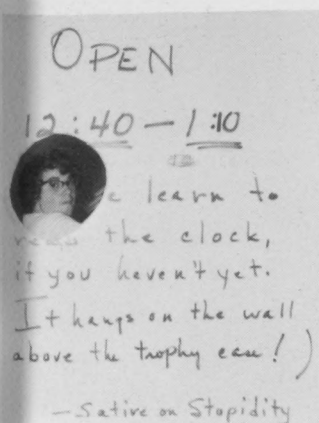 OPEN
12:40 – 1:10
learn to
the clock,
if you haven't yet.
It hangs on the wall
above the trophy case!)
—Satire on Stupidity